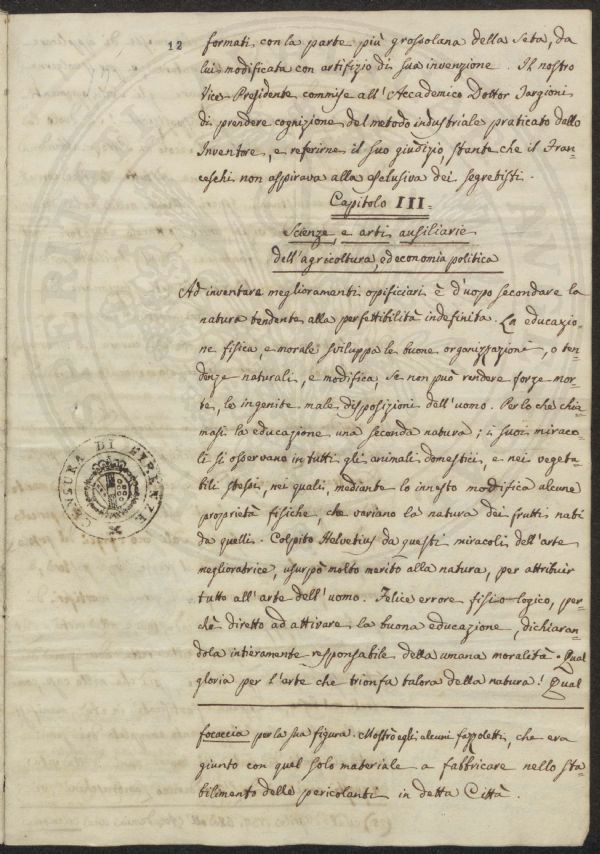 12
formati con la parte più grossolana della Seta, da
lui modificata con artifizio di sua invenzione. Il nostro
Vice-Presidente commise all'Accademico Dottor Targioni
di prendere cognizione del metodo industriale praticato dallo
Inventore, e referirne il suo giudizio, stante che il Fran=
ceschi non aspirava alla esclusiva dei segretisti.
Capitolo III.
Scienze, e arti ausiliarie
dell'agricoltura, ed economia politica
Ad inventare miglioramenti opificiari è d'uopo secondare la
natura tendente alla perfettibilità indefinita. La educazio=
ne fisica, e morale sviluppa le buone organizzazioni, o ten=
denze naturali, e modifica, se non può rendere forze mor=
te, le ingenite male disposizioni dell'uomo. Perlo che chia=
masi la educazione una seconda natura; i suoi miraco=
li si osservano in tutti gli animali domestici, e nei vegeta=
bili stessi, nei quali, mediante lo innesto modifica alcune
proprietà fisiche, che variano la natura dei frutti nati
da quelli. Colpito Helvetius da questi miracoli dell'arte
miglioratrice, usurpò molto merito alla natura, per attribuir
tutto all'arte dell'uomo. Felice errore fisio-logico, per=
chè diretto ad attivare la buona educazione, dichiaran=
dola intieramente responsabile della umana moralità. Qual
gloria per l'arte che trionfa talora della natura! Qual
focaccia per la sua figura. Mostrò egli alcuni fazzoletti, che era
giunto con quel solo materiale a fabbricare nello sta=
bilimento delle pericolanti in detta Città.
CENSURA DI FIRENZE